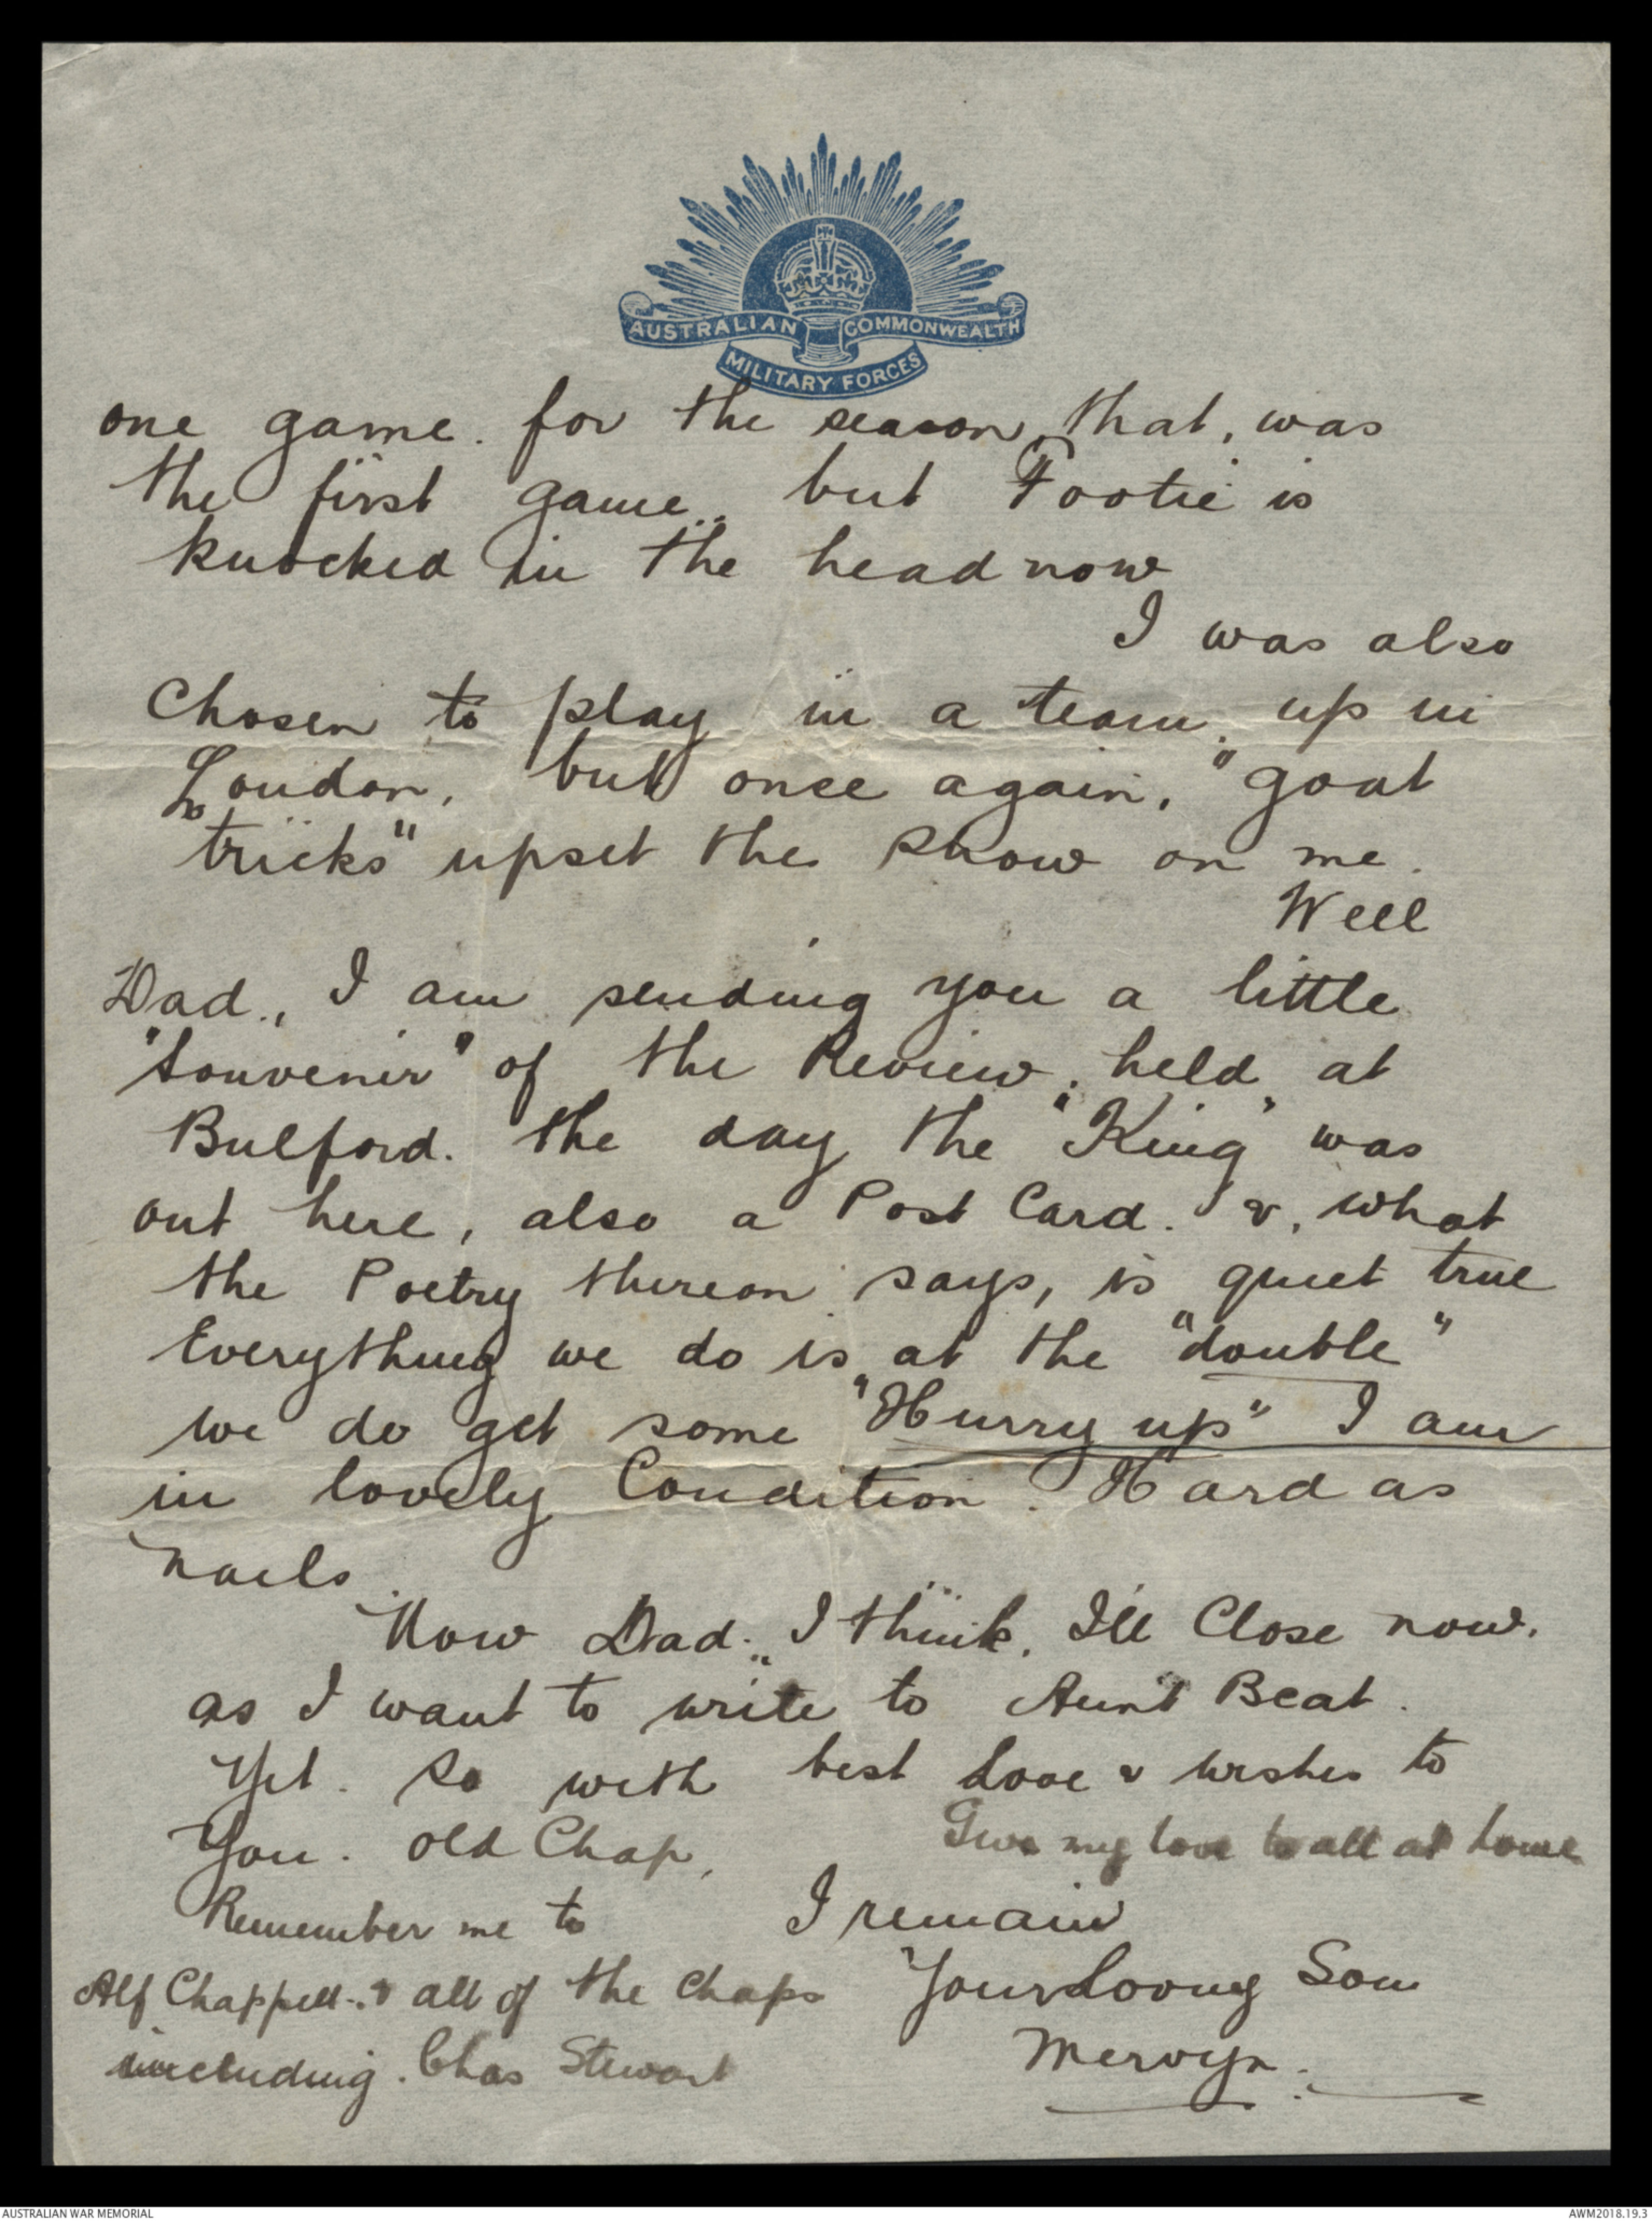 AUSTRALIAN COMMONWEALTH
MILITARY FORCES
one game. for the season, that, was
the first game.. but Footie is
knocked in the head now
I was also
Chosen to play in a team. up in
London, but once again, "goat
tricks" upset the show on me.
Well
Dad., I am sending you a little
"Souvenir" of the Review, held at
Bulford. the day the "King" was
out here, also a Post Card. & what
the Poetry thereon says, is quiet true
Everything we do is at the "double"
we do get some "Hurry up" I am
in lovely Condition. Hard as
nails.
Now Dad.,, I think, I'll Close now.
as I want to write to Aunt Beat.
Yet. So with best Love & wishes to
You. old Chap,
Give my love to all at home
Remember me to
I remain
Alf Chappell. & all of the Chaps
Your Loving Son
including. Chas Stewart
Mervyn.
AUSTRALIAN WAR MEMORIAL
AWM2018.19.3